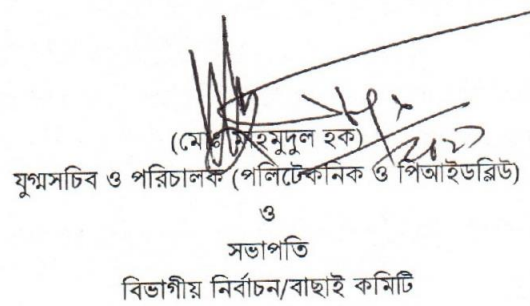 (মোঃ মাহমুদুল হক)
যুগ্মসচিব ও পরিচালক (পলিটেকনিক ও পিআইডব্লিউ)
ও
সভাপতি
বিভাগীয় নির্বাচন/বাছাই কমিটি